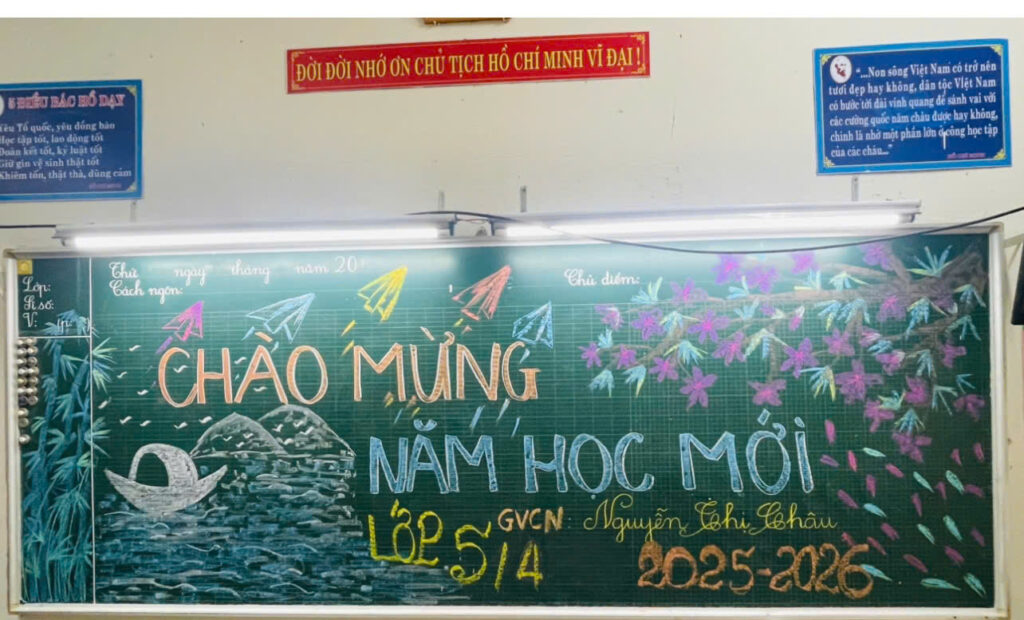 ĐỜI ĐỜI NHỚ ƠN CHỦ TỊCH HỒ CHÍ MINH VĨ ĐẠI !
5 ĐIỀU BÁC HỒ DẠY
Yêu Tổ quốc, yêu đồng bào
Học tập tốt, lao động tốt
Đoàn kết tốt, kỷ luật tốt
Giữ gìn vệ sinh thật tốt
Khiêm tốn, thật thà, dũng cảm
"...Non sông Việt Nam có trở nên
tươi đẹp hay không, dân tộc Việt Nam
có bước tới đài vinh quang để sánh vai với
các cường quốc năm châu được hay không,
chính là nhờ một phần lớn ở công học tập
của các cháu..."
HỒ CHÍ MINH
Lớp:
Sĩ số:
V: (p )
Thứ ngày tháng năm 20
Cách ngôn:
Chủ điểm:
CHÀO MỪNG
NĂM HỌC MỚI
LỚP. 5/4
GVCN: Nguyễn Thị Châu
2025-2026